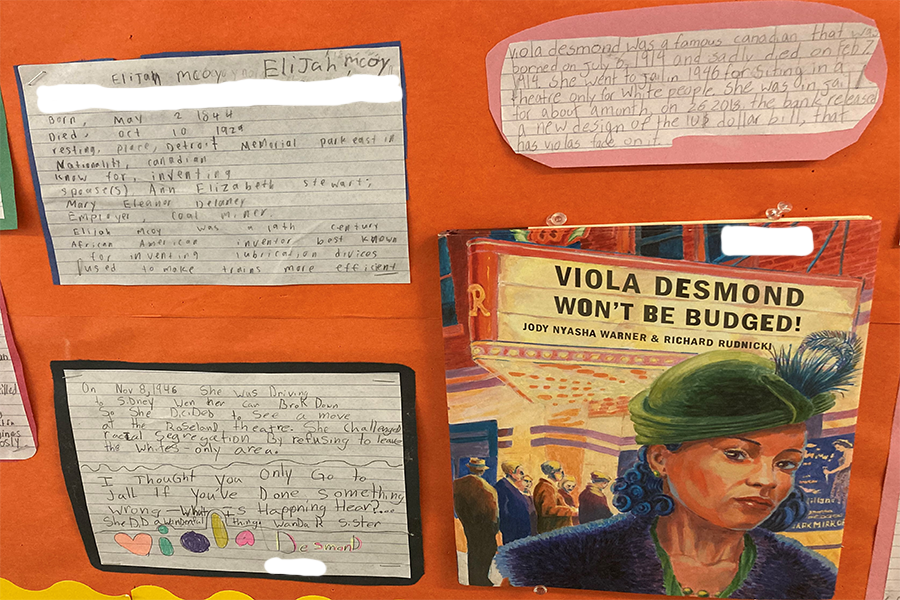 Elijah mcoy Elijah mcoy
Born, May 2 1844
Died, oct 10 1929
resting, place, Detroit Memorial park east in
Nationality, canadian
Know for, inventing
spouse(s) Ann Elizabeth stewart;
Mary Eleanor Delaney
Employer, coal miner.
Elijah mcoy was a 19th century
African American inventor best known
for inventing lubrication divices
used to make trains more efficient
Viola desmond was a famous canadian that was
borned on july 6, 1914 and sadly died on Feb 7
1914. She went to jail in 1946 for siting in a
theatre only for white people. She was in jail
for about a month, on 2018, the bank released
a new design of the 10$ dollar bill, that
has violas face on it.
On Nov 8, 1946 She was Driving
to Sidney Wen her car Brok Down
So She DiciDeD to See a move
at the Roseland theatre. She challenged
racial Segregation By refusing to leave
the whites only area.
I Thought You Only Go to
Jall If You've Done Something
Wrong What Is Happning Hear?...
She DiD a wonderful thing! Wanda R Sister
Viola Desmond
VIOLA DESMOND
WON'T BE BUDGED!
JODY NYASHA WARNER & RICHARD RUDNICKI
R